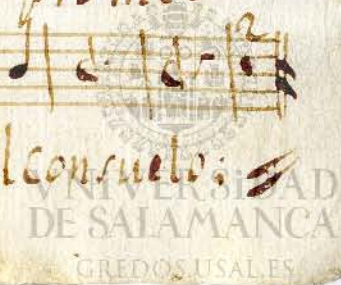 l consuelo:
UNIVERSIDAD
DE SALAMANCA
GREDOS.USAL.ES